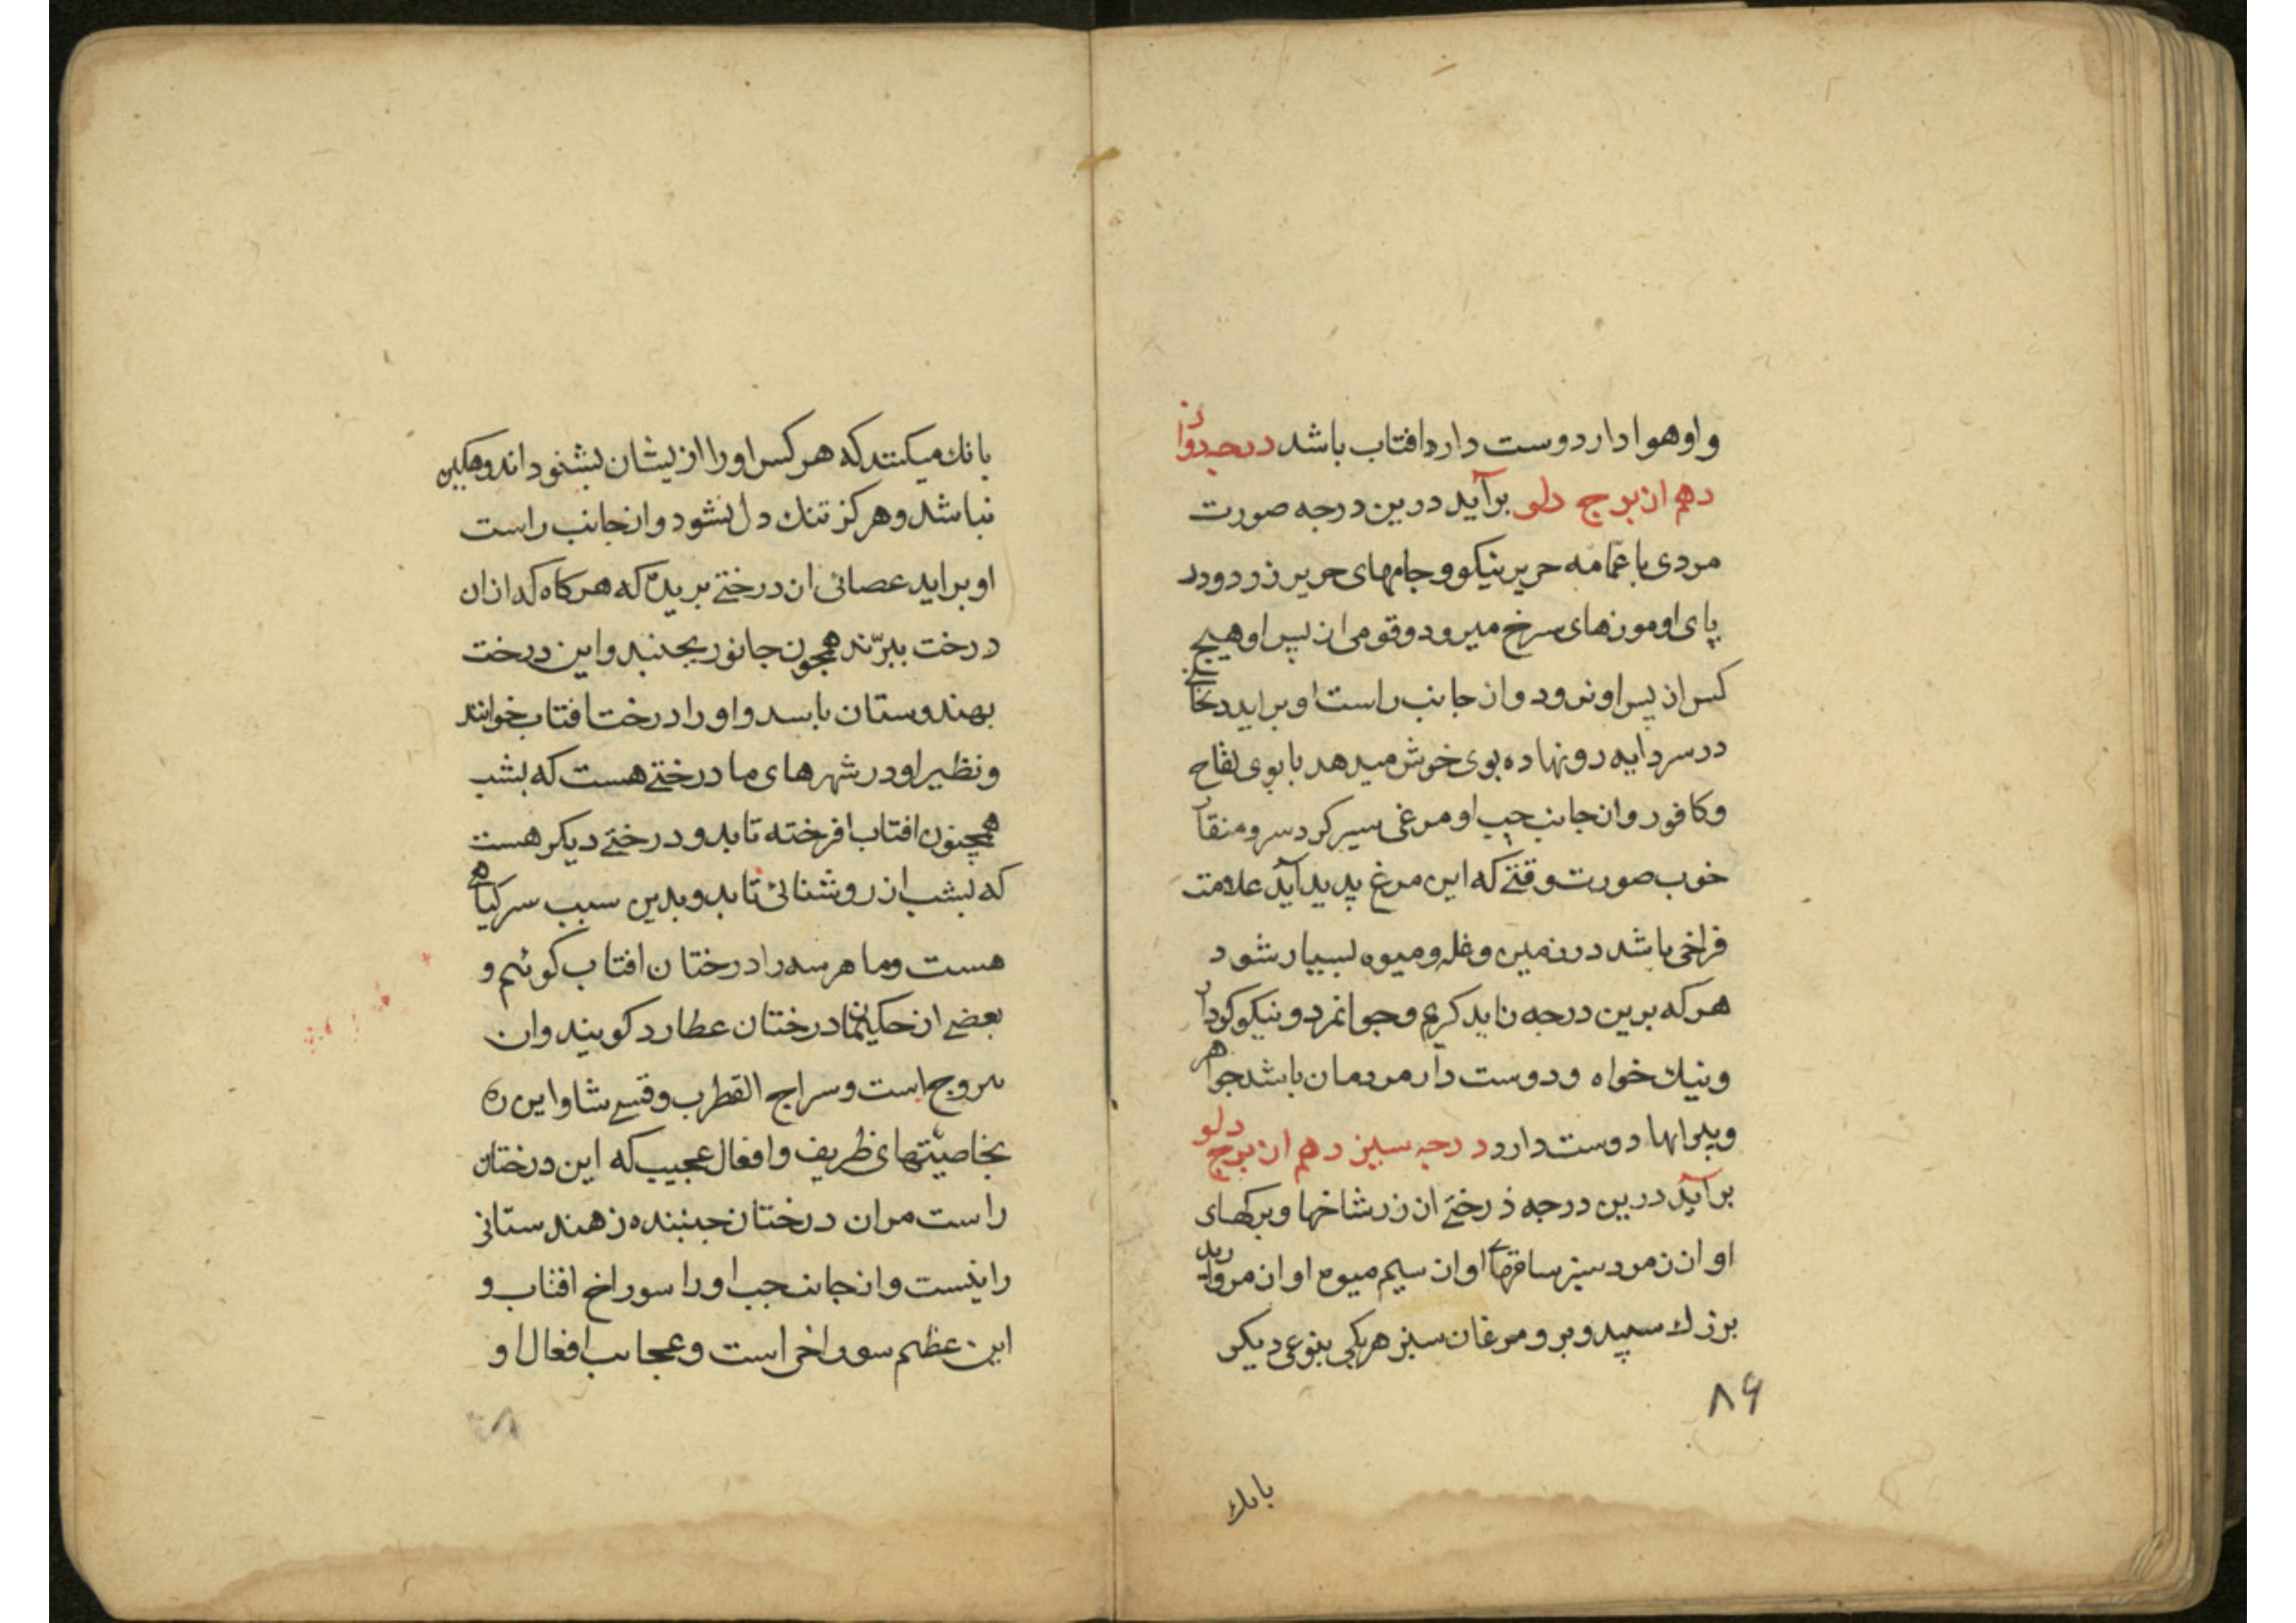 و او هوادار دوست دارد افتاب باشد درجه دواز
دهم از برج دلو برآید درین درجه صورت
مردی با عمّامه حریر نیکو و جامهای حریر زرد و در
پای او موزهای سرخ میرود و قومی از پس او هیچ
کس از پس او نرود و از جانب راست او براید درختی
در سردابه رو نهاده بوی خوش میدهد با بوی تفاح
و کافور و از جانب چپ او مرغی سبز کرد سر و منقار
خوب صورت وقتی که این مرغ پدید آید علامت
فراخی باشد در زمین و غله و میوه بسیار شود
هرکه برین درجه زاید کریم و جوانمرد و نیکو کردار
و نیک خواه و دوست دار مردمان باشد جواهر
و پیرایها دوست دارد درجه سیزدهم از برج دلو
برآید درین درجه درختی از زر شاخها و برکهای
او از زمرد سبز ساقهای او از سیم میوه او از مروارید
بزرك سپید و برو مرغان سبز هر یکی بنوعی دیکر
۸۶
بانك
بانك میکنند که هر کس اورا از یشان بشنود اندوهکین
نباشد و هرکز تنك دل نشود و از جانب راست
او براید عصائی از درختی بریده که هرکاه که از ان
درخت ببرّند همچون جانور بجنبد و این درخت
بهندوستان باشد و او را درخت افتاب خوانند
و نظیر او در شهرهای ما درختی هست که بشب
همچون افتاب افرخته تابد و درختی دیکر هست
که بشب از روشنائی تابد و بدین سبب سر کیاهی
هست و ما هر سه را درختان افتاب کوئیم و
بعضی از حکیمان درختان عطارد کویند و ان
سروج است و سراج القطرب و قسی شاو این ره
بخاصیّتهای ظریف و افعال عجیب که این درختان
راست مر ان درختان جنبنده ز هندستانی
را نیست و از جانب چپ او را سوراخ افتاب و
این عظیم سوراخی است و عجایب افعال او